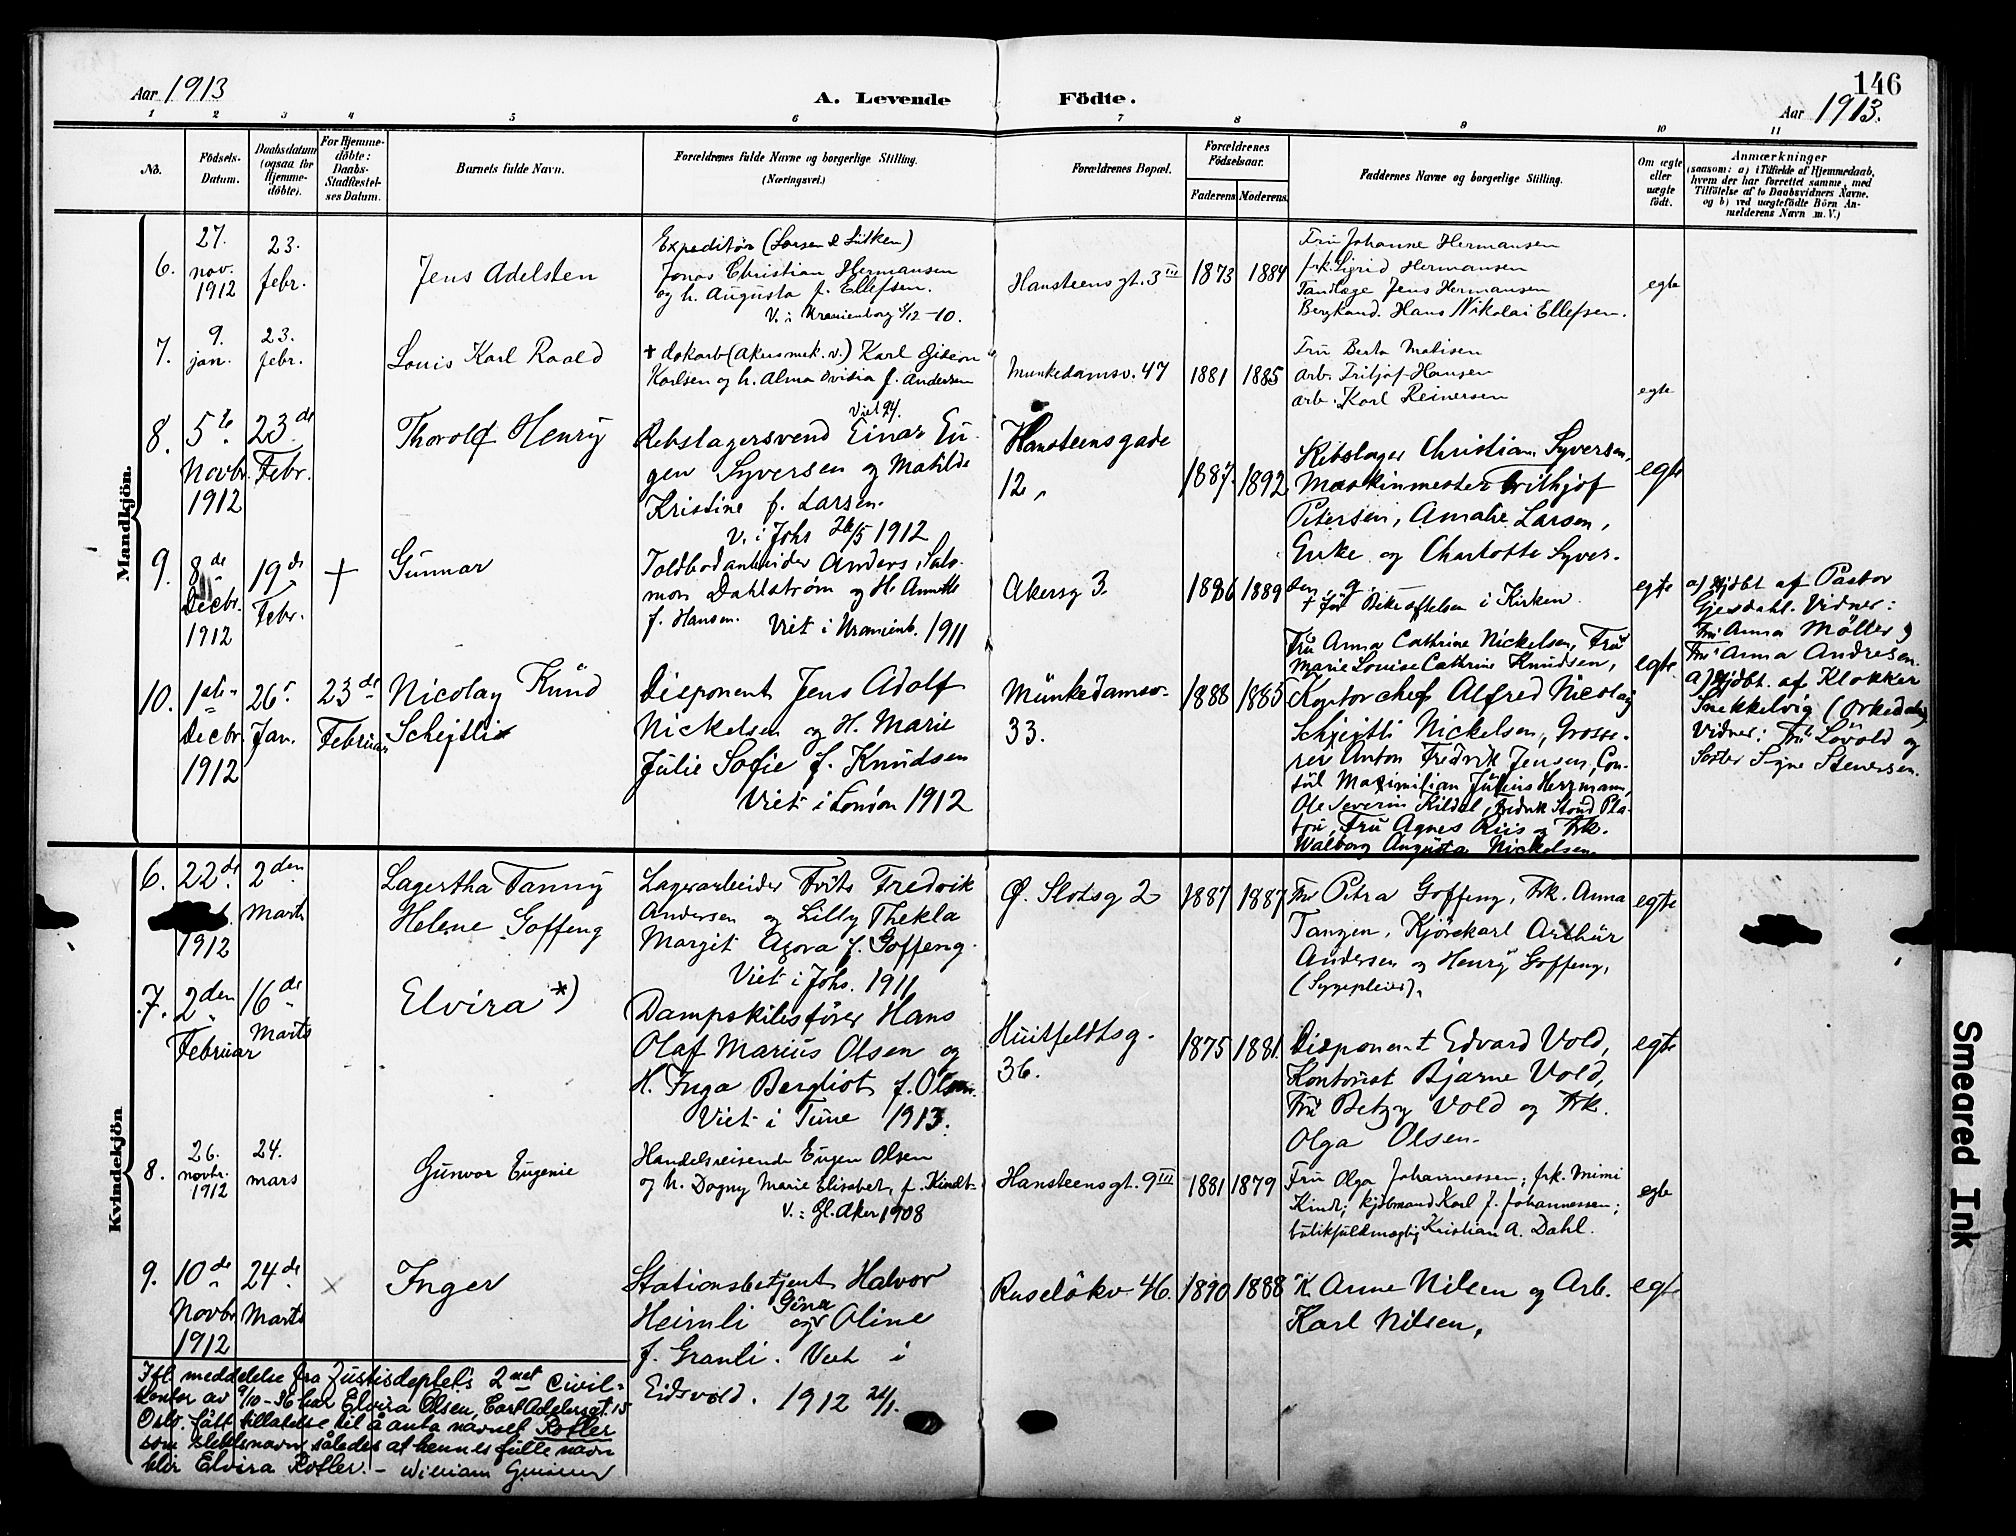 146
Aar 1913
A. Levende Födte.
Aar 1913.
1 2 3 4 5 6 7 8 9 10 11
No.
Födsels-
Datum.
Daabsdatum
(ogsaa for
Hjemme-
döbte).
For Hjemme-
döbte:
Daabs-
Stadfæstel-
ses Datum.
Barnets fulde Navn.
Forældrenes fulde Navne og borgerlige Stilling.
(Næringsvei.)
Forældrenes Bopæl.
Forældrenes
Födselsaar.
Faderens
Moderens
Faddernes Navne og borgerlige Stilling.
Om ægte
eller
uægte
født.
Anmærkninger
(saasom: a) i Tilfælde af Hjemmedaab,
hvem der har forrettet samme, med
Tilföielse af to Daabsvidners Navne,
og b) ved uægtefödte Börn An-
melderens Navn m. V.)
Mandkjön.
6.
27.
nov.
1912
23.
febr.
Jens Adelsten
Expeditör (Larsen & Lütken)
Jonas Christian Hermansen
og h. Augusta f. Ellefsen.
V. i Uranienborg /12 -10.
Hansteens gt. 3 III
1873
1884
Fru Johanne Hermansen
frk. Sigrid Hermansen
Tandlæge Jens Hermansen
Bergkand. Hans Nikolai Ellefsen.
egte
7.
9.
jan.
23.
febr.
Louis Karl Roald
+ dokarb (Akers mek. v.) Karl Gideon
Karlsen og h. Alma Ovidia f. Andersen
Viet 94.
Munkedamsv. 47
1881
1885
Fru Berta Matisen
arb. Fritjof Hansen
arb. Karl Reinersen
egte
8.
5te
Novbr.
1912
23de
Febr.
Thorolf Henry
Rebslagersvend Einar Eu-
gen Syversen og Matilde
Kristine f. Larsen.
V. i Johs 26/5 1912
Hansteensgade
12,
1887.
1892
Rebslager Christian Syversen,
Maskinmester Frithjof
Petersen, Amalie Larsen,
Enke og Charlotte Syver-
sen, g.
egte
9.
8de
Decbr.
1912
19de
Febr.
+
Gunnar
Toldbodarbeider Anders Salo-
mon Dahlström og H. Annette
f. Hansen. Viet i Uranienb. 1911
Akersg 3.
1886
1889
+ før Bekræftelsen i Kirken.
egte
a) hjdbt af Pastor
Gjesdahl. Vidner:
Fru Anna Möller og
Fru Anna Andresen.
10.
1ste
Decbr.
1912
26.
Jan.
23de
Februar
Nicolay Knud
Schejtli
Disponent Jens Adolf
Nickelsen og H. Marie
Julie Sofie f. Knudsen
Viet i London 1912
Munkedamsv-
33.
1888
1885
Fru Anna Cathrine Nickelsen, Fru
Marie Louise Cathrine Knudsen,
Kontorchef Alfred Nicolay
Schjejtli Nickelsen, Grosse-
rer Anton Fredrik Jensen, Con-
sul Maximilian Julius Herzmann,
Ole Severin Kildal, Fredrik Stoud Pla-
tou, Fru Agnes Riis og Frk.
Walborg Augusta Nickelsen.
egte.
a) hjdbt. af Klokker
Snekkelvig (Orkedalen)
Vidner: Fru Lövold og
Söster Signe Stenersen.
Kvindekjön
6.
22de
1912
2den
Marts
Lagertha Fanny
Helene Goffeng
Lagerarbeider Frits Fredrik
Andersen og Lilly Thekla
Margit Agora f. Goffeng.
Viet i Johs. 1911
Ø. Slotsg 2
1887
1887
Fru Petra Goffeng, Frk. Anna
Tangen, Kjörekarl Arthur
Andersen og Henry Goffeng,
(Sygepleier).
egte
7.
2den
Februar
16de
Marts
Elvira *)
Dampskibsförer Hans
Olaf Marius Olsen og
H. Inga Bergliot f. Olsen.
Viet i Tune 1913.
Huitfeldtsg.
36.
1875
1881.
Disponent Edvard Vold,
Kontorist Bjarne Vold,
Fru Betzy Vold og Frk.
Olga Olsen.
egte
8.
26.
novbr.
1912
24.
mars
Gunvor Eugenie
Handelsreisende Eugen Olsen
og h. Dagny Marie Elisabet, f. Kindt-
V. : Gl. Aker 1908
Hansteens gt. 9 III
1881
1879
Fru Olga Johannessen; frk. Mimi
Kindt; kjöbmand Karl J. Johannessen;
butikfuldmægtig Kristian A. Dahl.
egte
9.
10de
Novbr
1912
24de
Marts
×
Inger
Stationsbetjent Halvor
Heimli og Gina Oline
f. Granli. Viet i
Eidsvold. 1912 21/1.
Ruselökv 46.
1890
1888
K. Anne Nilsen og Arb.
Karl Nilsen,
egte
Ifl. meddelelse fra Justisdeptets 2net Civil-
kontor av 9/10-36 har Elvira Olsen, Carl Adelersgt. 15
Oslo fått tillatelse til å anta navnet Rotler
som slektsnavn således at hennes fulle navn
blir Elvira Rotler. - William
Smeared Ink